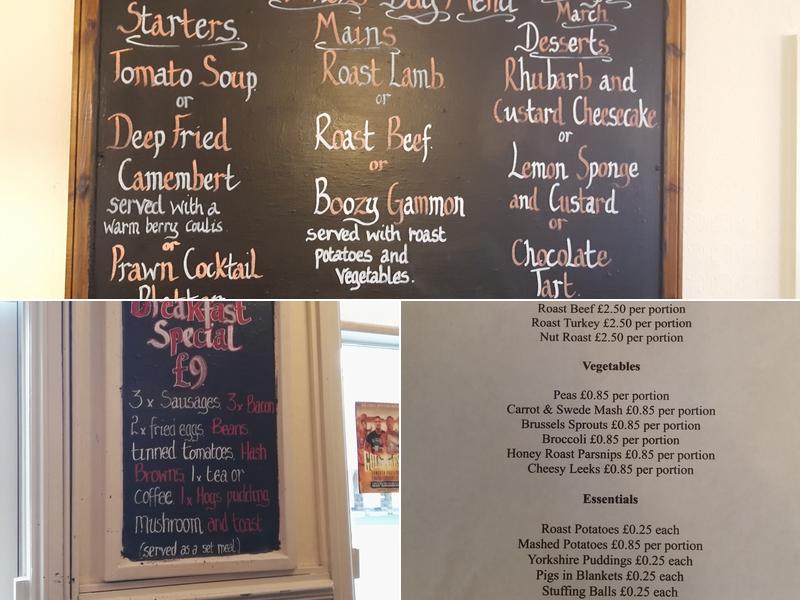 Day Menu
March
Starters
Tomato Soup
or
Deep Fried
Camembert
served with a
warm berry coulis
or
Prawn Cocktail
Mains
Roast Lamb
or
Roast Beef.
or
Boozy Gammon
served with roast
potatoes and
Vegetables.
Desserts
Rhubarb and
Custard Cheesecake
or
Lemon Sponge
and Custard
or
Chocolate
Tart.
Breakfast
Special
£9
3 x Sausages, 3x Bacon
2x fried eggs, Beans
tinned tomatoes, Hash
Browns, 1x tea or
coffee, 1x Hogs pudding,
mushroom, and toast
(served as a set meal)
Roast Beef £2.50 per portion
Roast Turkey £2.50 per portion
Nut Roast £2.50 per portion
Vegetables
Peas £0.85 per portion
Carrot & Swede Mash £0.85 per portion
Brussels Sprouts £0.85 per portion
Broccoli £0.85 per portion
Honey Roast Parsnips £0.85 per portion
Cheesy Leeks £0.85 per portion
Essentials
Roast Potatoes £0.25 each
Mashed Potatoes £0.85 per portion
Yorkshire Puddings £0.25 each
Pigs in Blankets £0.25 each
Stuffing Balls £0.25 each